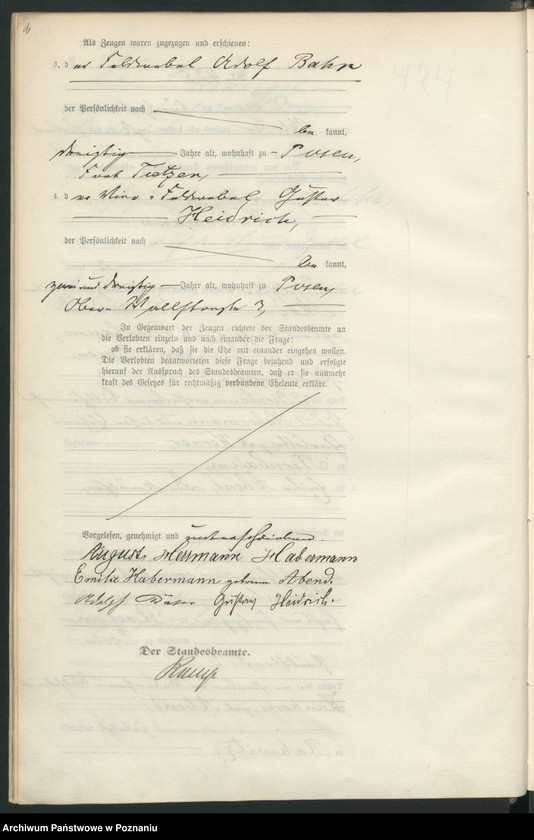 Als Zeugen waren zugezogen und erschienen:
3. der Feldwebel Adolf
der Persönlichkeit nach
be kannt,
dreißig Jahre alt, wohnhaft zu Posen,
Fort Tietzen,
4. der Vice-Feldwebel Gustav
Heidrich,
der Persönlichkeit nach
be kannt,
zweiunddreißig Jahre alt, wohnhaft zu Posen,
Ober-Wallstraße 3,
In Gegenwart der Zeugen richtete der Standesbeamte an
die Verlobten einzeln und nach einander die Frage:
ob sie erklären, daß sie die Ehe mit einander eingehen wollen.
Die Verlobten beantworteten diese Frage bejahend und erfolgte
hierauf der Ausspruch des Standesbeamten, daß er sie nunmehr
kraft des Gesetzes für rechtmäßig verbundene Eheleute erkläre.
Vorgelesen, genehmigt und unterschrieben.
August Herrmann Habermann
Emilie Habermann geborene Abend.
Adolf Gustav Heidrich.
Der Standesbeamte.
424
Archiwum Państwowe w Poznaniu